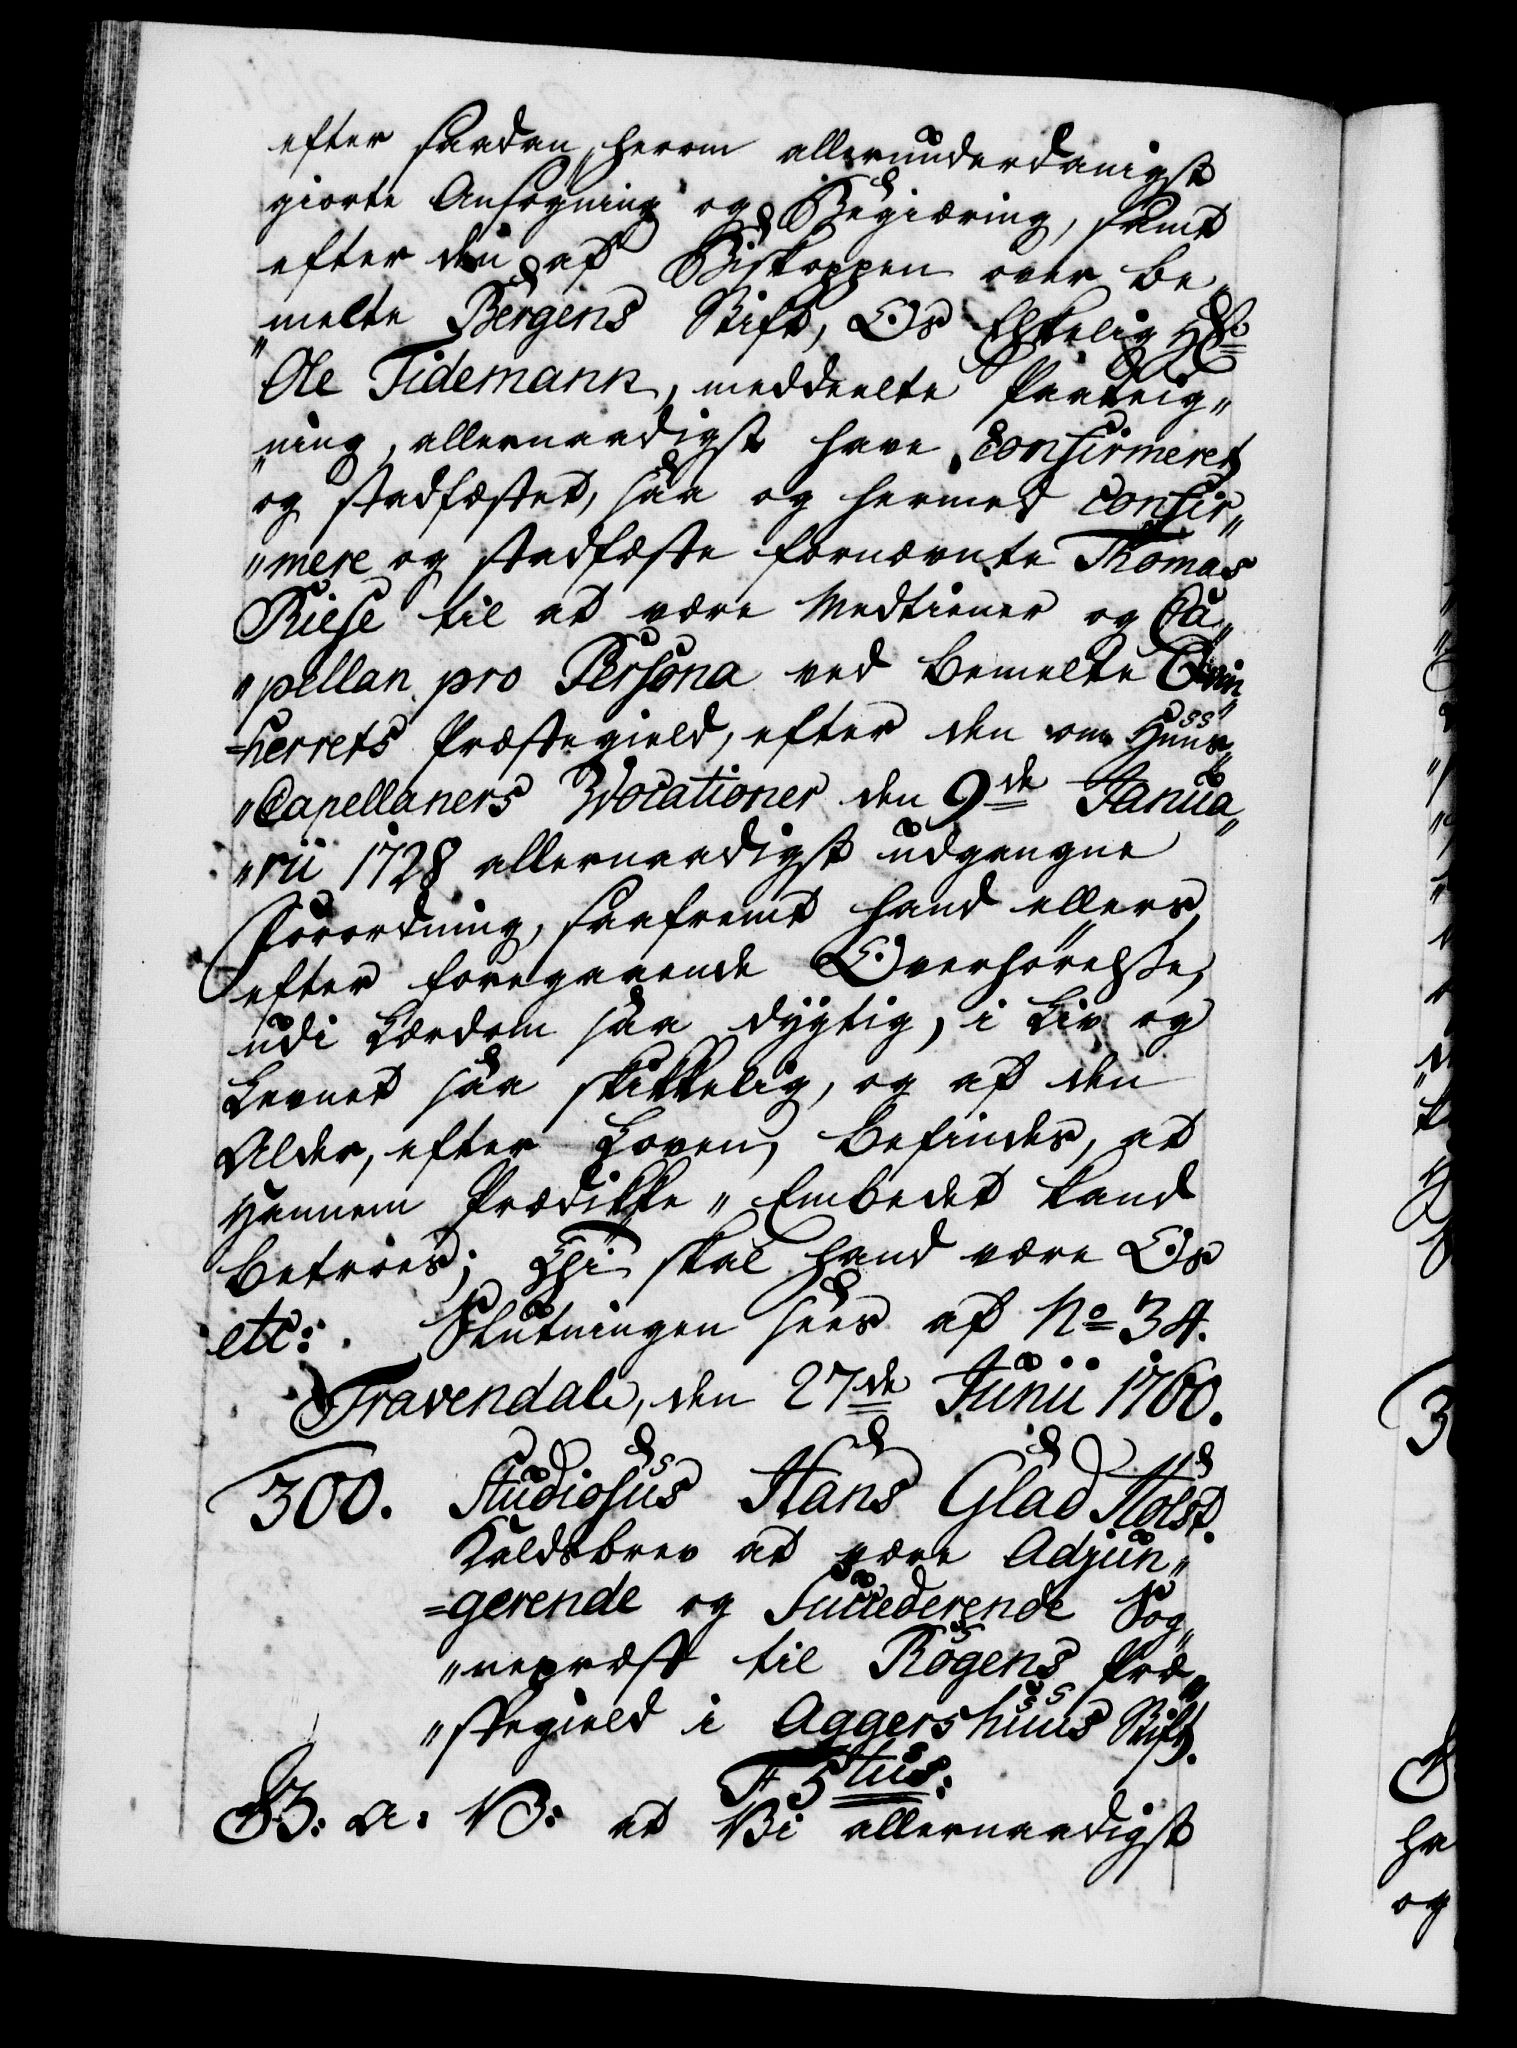 efter saadan herom allerunderdanigst
giorte Ansøgning og Begiæring, samt
efter den af Biskoppen over be„
„melte Bergens Stift, Os Elskelig Hr.
Ole Tidemann, meddeelte Paateig„
„ning, allernaadigst have confirmeret
og stadfæstet, saa og hermed confir„
„mere og stadfæste fornævnte Thomas
Riese til at være Medtiener og Ca„
„pellan pro Persona ved bemelte Qvin„
=herrets Præstegield, efter den om Huus„
„Capellaners Vocationer den 9de Janua„
„rii 1728 allernaadigst udgangne
Forordning, saafremt hand ellers,
efter foregaaende Overhørelse,
udi Lærdom saa dygtig, i Liv og
Levnet saa skikkelig, og af den
Alder, efter Loven, befindes, at
Hannem Prædikke„Embedet kand
betroes; Thi skal hand være Os
etc: Slutningen sees af No 34.
Travendale, den 27de Junii 1760.
300. Studiosus Hans Glad Holst.
Kaldsbrev at være Adjun„
=gerende og Succederende Sog„
„nepræst til Røgens Præ„
„stegield i Aggershuus Stift.
F 5tus.
G: A: V: at Vi allernaadigst